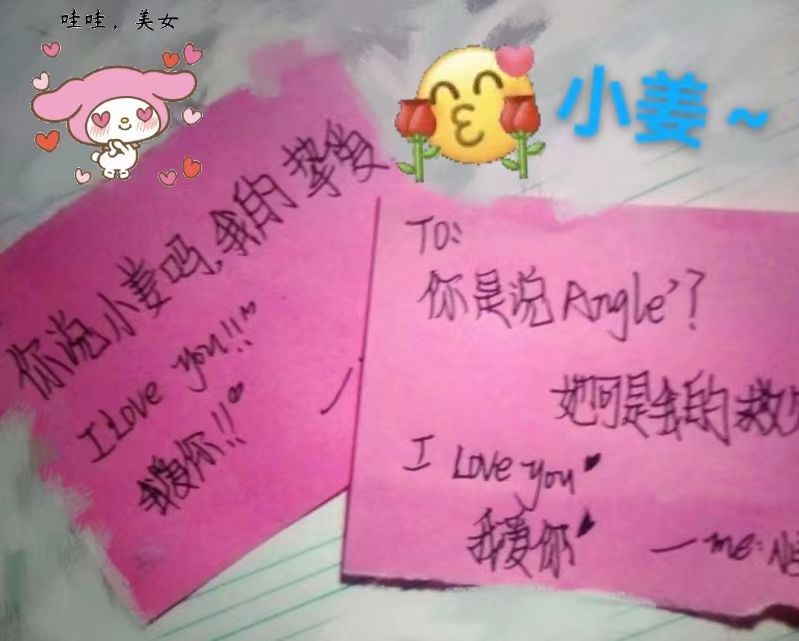 哇哇，美女
小姜~
你说小姜吗,我的挚爱
I Love you!!
我爱你!!
TO:
你是说Angle'?
她可是我的救
I Love you
我爱你
—me: